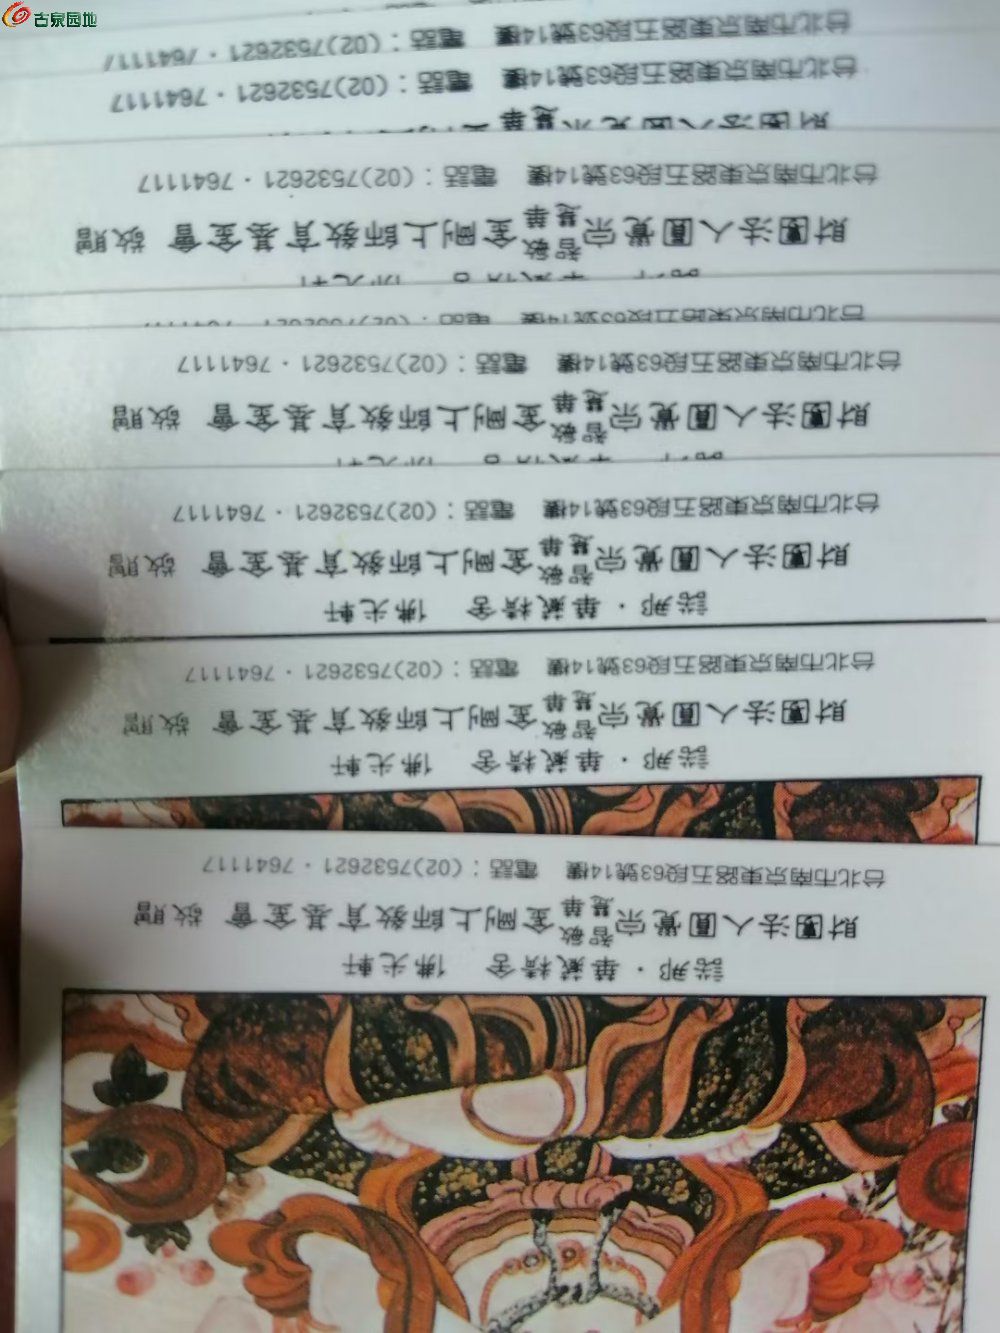 古泉园地
諾那・華藏精舍 佛光軒
財團法人圓覺宗智敏慧華金剛上師教育基金會 敬贈
台北市南京東路五段63號14樓 電話：(02)7532621・7641117
諾那・華藏精舍 佛光軒
財團法人圓覺宗智敏慧華金剛上師教育基金會 敬贈
台北市南京東路五段63號14樓 電話：(02)7532621・7641117
諾那・華藏精舍 佛光軒
財團法人圓覺宗智敏慧華金剛上師教育基金會 敬贈
台北市南京東路五段63號14樓 電話：(02)7532621・7641117
財團法人圓覺宗智敏慧華金剛上師教育基金會 敬贈
台北市南京東路五段63號14樓 電話：(02)7532621・7641117
財團法人圓覺宗智敏慧華金剛上師教育基金會 敬贈
台北市南京東路五段63號14樓 電話：(02)7532621・7641117
台北市南京東路五段63號14樓 電話：(02)7532621・7641117
台北市南京東路五段63號14樓 電話：(02)7532621・7641117